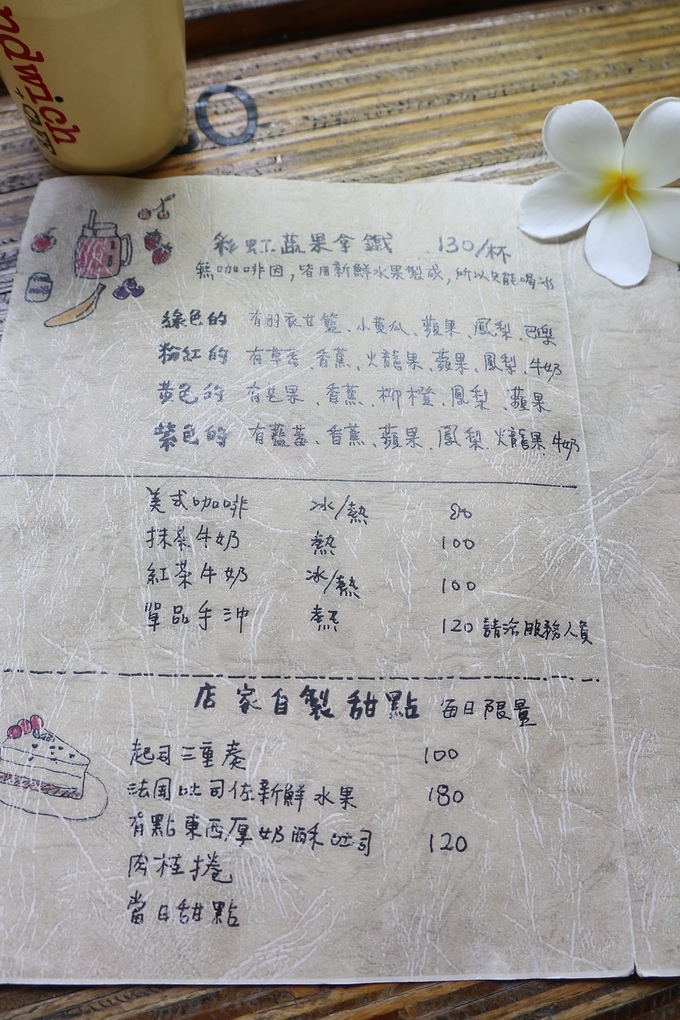 ndwich
彩虹蔬果拿鐵 130/杯
無咖啡因,皆用新鮮水果製成,所以只能喝冰
綠色的 有羽衣甘籃、小黃瓜、蘋果、鳳梨、芭樂
粉紅的 有草莓、香蕉、火龍果、蘋果、鳳梨、牛奶
黃色的 有芒果、香蕉、柳橙、鳳梨、蘋果
紫色的 有藍莓、香蕉、蘋果、鳳梨、火龍果、牛奶
美式咖啡 冰/熱 80
抹茶牛奶 熱 100
紅茶牛奶 冰/熱 100
單品手沖 熱 120 請洽服務人員
店家自製甜點 每日限量
起司三重奏 100
法國吐司佐新鮮水果 180
有點東西厚奶酥吐司 120
肉桂捲
當日甜點
milk